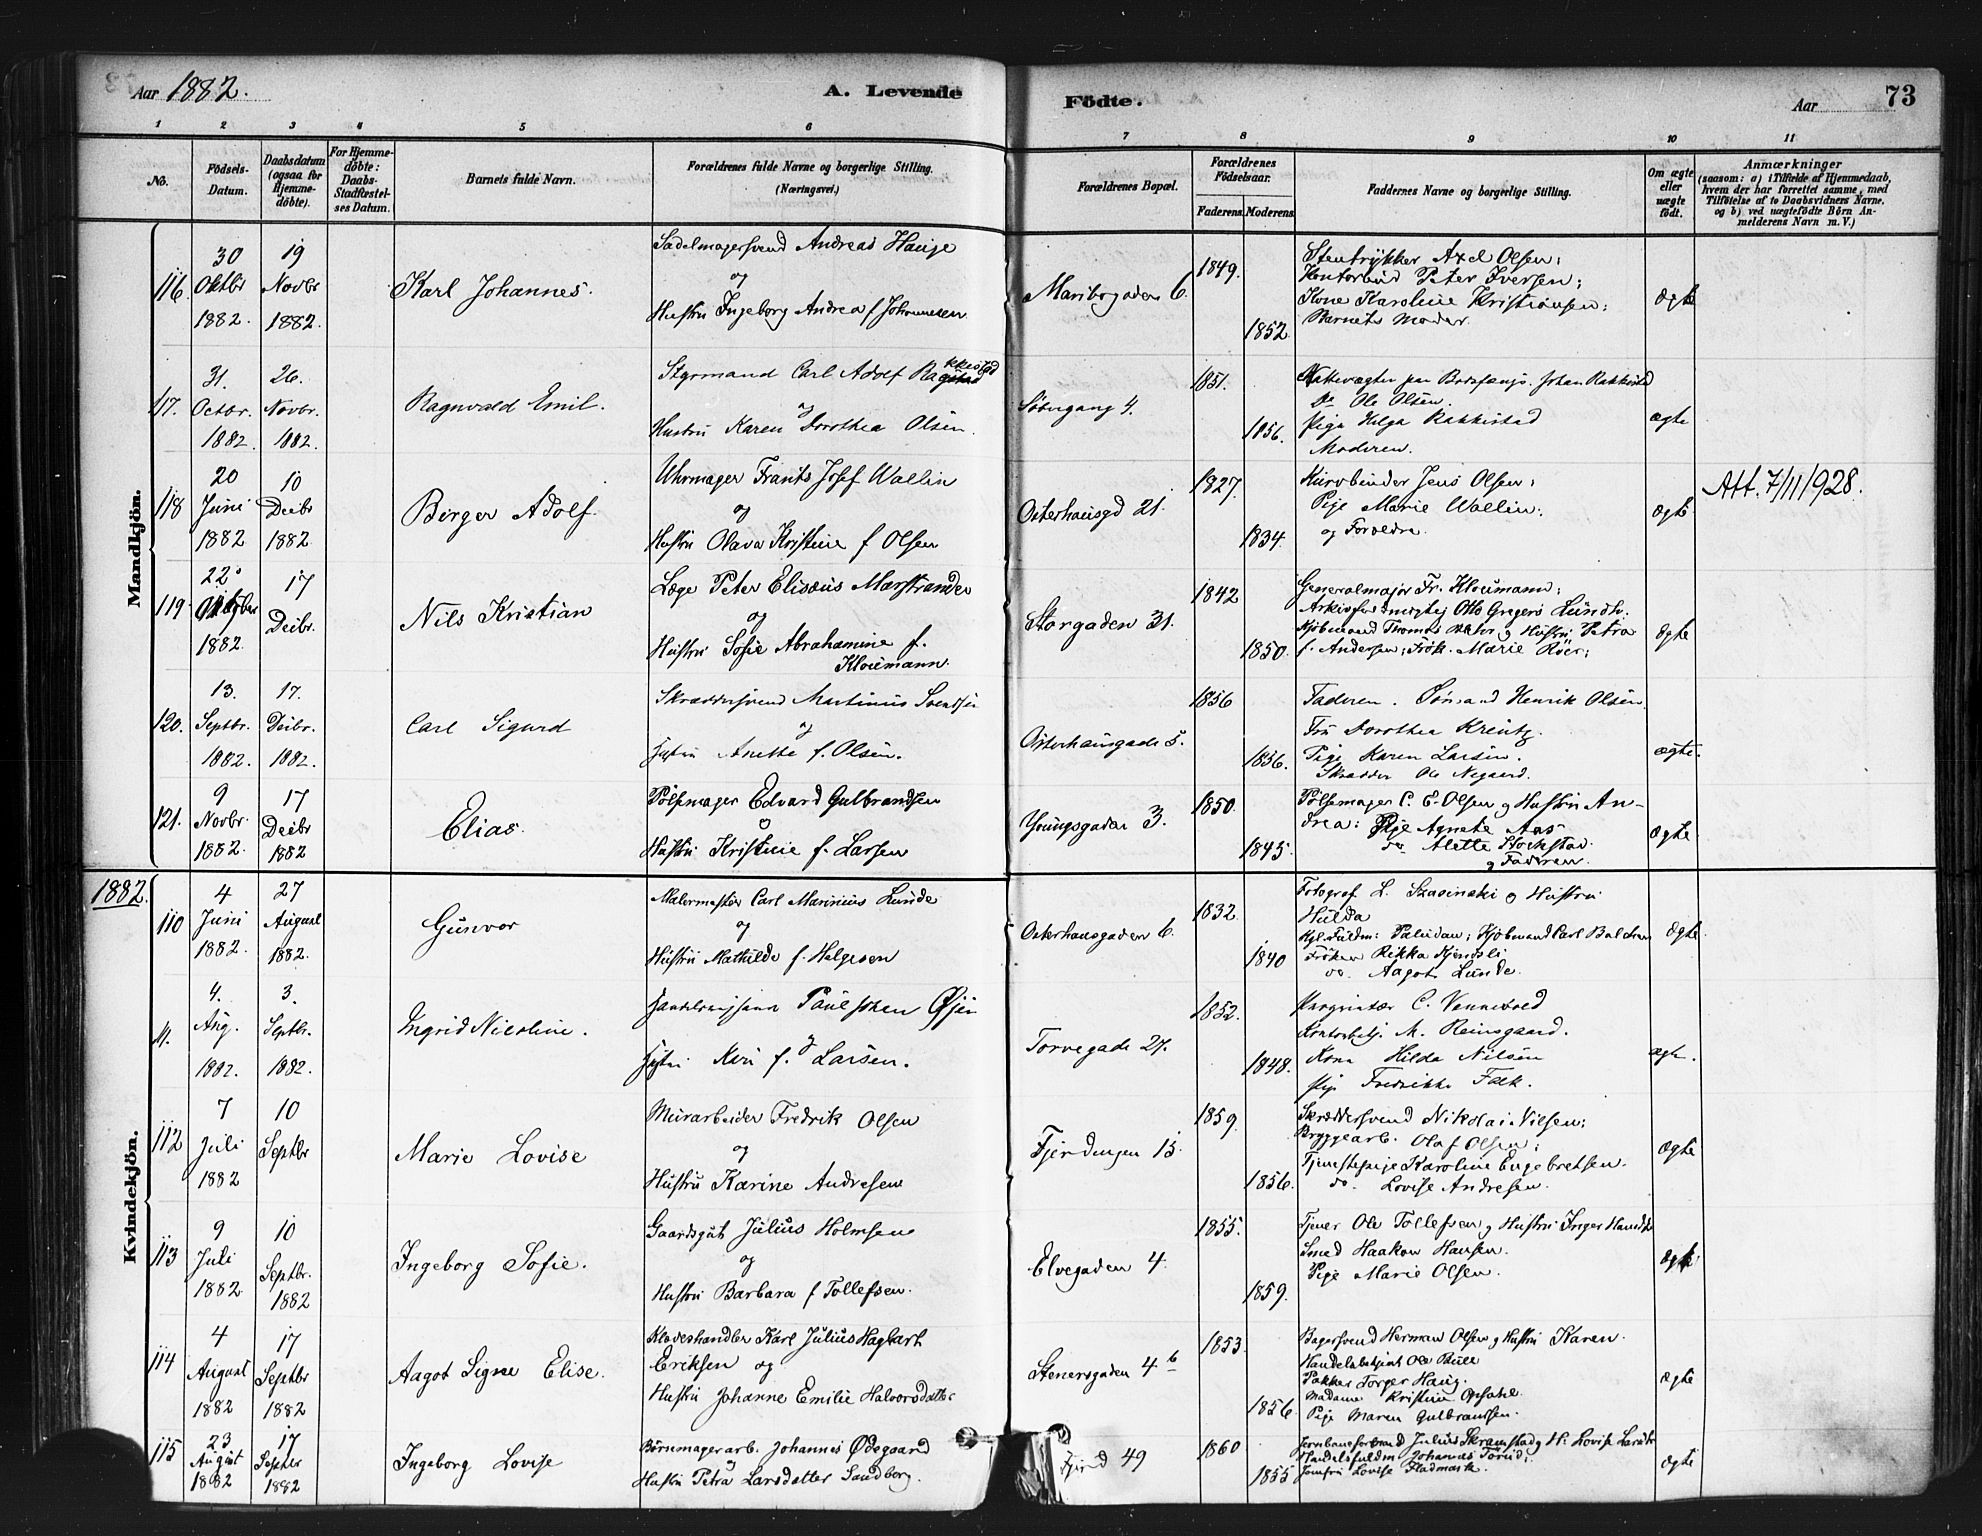 Aar 1882.
A. Levende
Födte.
Aar
73
1 2 3 4 5 6 7 8 9 10 11
No.
Födsels-Datum.
Daabsdatum (ogsaa for Hjemme-döbte).
For Hjemme-döbte: Daabs-Stadfæstel-ses Datum.
Barnets fulde Navn.
Forældrenes fulde Navne og borgerlige Stilling.
(Næringsvei.)
Forældrenes Bopæl.
Forældrenes Födselsaar.
Faderens. Moderens.
Faddernes Navne og borgerlige Stilling.
Om ægte eller uægte födt.
Anmærkninger
(saasom: a) i Tilfælde af Hjemmedaab,
hvem der har forrettet samme, med
Tilföielse af to Daabsvidners Navne,
og b) ved uægtefödte Börn An-
melderens Navn m. V.)
Mandkjön.
116. 30 Oktbr 1882. 19 Novbr 1882.
Karl Johannes.
Sadelmagersvend Andreas Hauge
og
Hustru Ingeborg Andrea f Johannesen
Maribogaden 6.
1849.
1852.
Stentrykker Axel Olsen;
Kontorbud Peter Iversen;
Kone Karoline Kristiansen;
Barnets Moder.
ægte
117. 31. Octbr. 1882. 26. Novbr. 1882.
Ragnvald Emil.
Styrmand Carl Adolf Rakkestad
og
Hustru Karen Dorothea Olsen.
1851.
1856.
Nattevægter Johan Rakkestad
Do Ole Olsen.
Pige Helga Rakkestad
Moderen.
ægte
118 20 Juni 1882 10 Decbr 1882.
Birger Adolf.
Uhrmager Frants Josef Wallin
og
Hustru Olava Kristine f Olsen
Osterhausgd 21.
1827.
1834.
Kurvbinder Jens Olsen;
Pige Marie Wallin;
og Forældre.
ægte
Att. 7/11 1928.
119 22. 1882. 17 Decbr.
Nils Kristian
Læge Peter Elisæus Marstrander
og
Hustru Sofie Abrahamine f.
Kloumann.
Storgaden 31.
1842
1850.
Generalmajor Fr. Kloumann;
Arkivfuldmægtig Otto Gregers Lundh.
Kjøbmand Thomas og Hustru Petra
f. Andersen; Frøk. Marie Röer;
ægte
120. 13. Septbr. 1882. 17. Decbr. 1882.
Carl Sigurd
Skræddersvend Martinius Svendsen
og
Hustru Anette f. Olsen.
Osterhausgade 5.
1856
1856.
Faderen. Henrik Olsen
Fru Dorothea Kreutz.
Pige Karen Larsen.
Skrædder Ole Negaard.
ægte.
121. 9 Novbr. 1882. 17 Decbr 1882
Elias.
Pølsemager Edvard Gulbrandsen
og
Hustru Kristine f. Larsen
Youngsgaden 3.
1850.
1845.
Pølsemager C. E. Olsen og Hustru An-
drea; Pige Agnete Aas
do Alette
og Faderen.
ægte
Kvindekjön.
1882.
110 4 Juni 1882. 27 August 1882.
Gunvor
Malermester Carl Marinius Lunde
og
Hustru Mathilde f. Helgesen
Osterhausgaden 6.
1832.
1840
Fotograf L. Szacinski og Hustru
Hulda
Kgl. Fuldm: Paludan; Kjøbmand Carl Balchen
Frøken Rikka Kjendsli
do. Aagot Lunde.
ægte.
11. 4. Aug. 1882. 3. Septbr. 1882.
Ingrid Nicoline.
Øjen
og
Hustru f. Larsen.
Torvegade 27.
1852.
1848.
C. Vennevold
M. Reinsgaard.
Kone Hilda Nilsen
Pige Fredrikke Falk.
ægte.
112 7 Juli 1882 10 Septbr
Marie Lovise
Murarbeider Fredrik Olsen
og
Hustru Karine Andresen
Fjerdingen 15.
1859.
1856.
Skræddersvend Nikolai Nilsen;
Bryggearb. Olaf Olsen;
Tjenestepige Karoline Engebretsen.
do. Lovise Andresen.
ægte
113 9 Juli 1882. 10 Septbr. 1882
Ingeborg Sofie.
Gaardsgut Julius Holmsen
og
Hustru Barbara f Tollefsen.
Elvegaden 4.
1855.
1859.
Tjener Ole Tollefsen og Hustru Inger
Smed Haakon Hansen.
Pige Marie Olsen.
ægte
114 4 August 1882 17 Septbr 1882
Aagot Signe Elise.
Klædeshandler Karl Julius Hagbart
Eriksen og
Hustru Johanne Emilie Halvorsdatter
Stenersgaden 4 b
1853.
1856.
Bagersvend Herman Olsen og Hustru Karen.
Handelsbetjent Ole Bull
Pakker Torger Haug.
Madame Kristine Opsahl.
Pige Maren Gulbrandsen.
ægte
115 23 August 1882 17 Septbr 1882
Ingeborg Lovise
Børnmagerarb. Johannes Ødegaard
og
Hustru Petra Larsdatter Sandborg.
Fjerd 49
1860
1855
Julius Skramstad og H. Lovise
Handelsfuldm Johannes
Jomfru Lovise Fladmark.
ægte